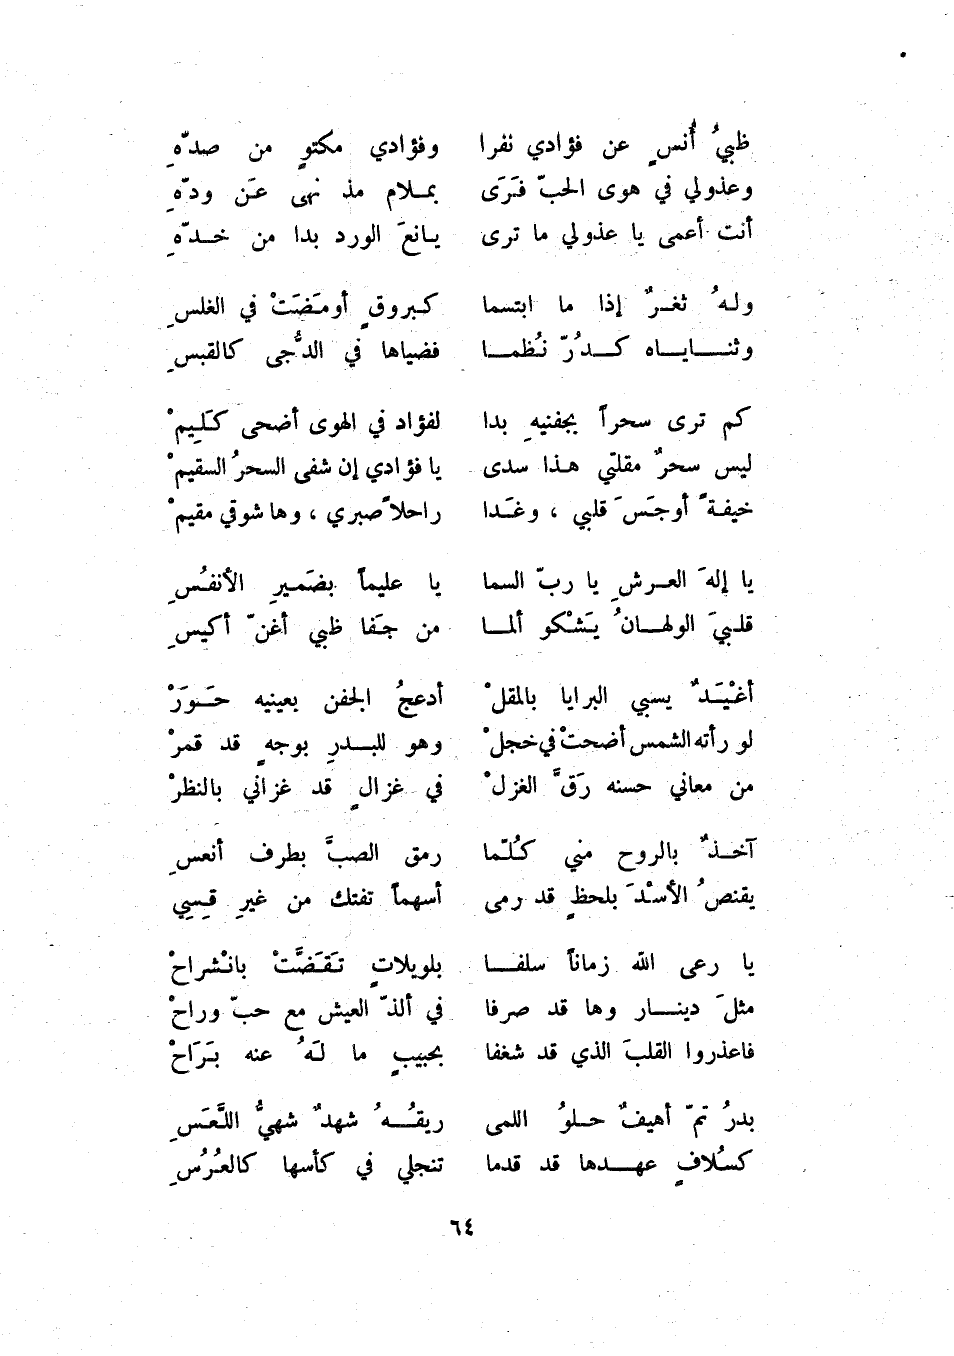 ظبيُ أُنسٍ عن فؤادي نفرا وفؤادي مكتوٍ من صدّهِ
وعذولي في هوى الحبّ فَرَى بمــلام مذ نهى عَن ودّهِ
أنت أعمى يا عذولي ما ترى يـانعَ الورد بدا من خــدّهِ
ولـهُ ثغــرٌ إذا ما ابتسما كـبروقٍ أومَـضَتْ في الغلسِ
وثنــــايـــاه كـــدُرّ نُـظمــا فضياها في الدُّجى كالقبسِ
كم ترى سحراً بجفنيهِ بدا لفؤاد في الهوى أضحى كَلِيمْ
ليس سحرٌ مقلتي هـذا سدى يا فؤادي إن شفى السحرُ السقيمْ
خيفـةً أوجَسَ قلبي ، وغَـدا راحلاً صبري ، وها شوقي مقيمْ
يا إلهَ العـرشِ يا ربّ السما يا عليماً بضَميرِ الأنفُسِ
قلـبيَ الولهـــانُ يَشْكو ألمــا من جَفا ظبي أغنّ أكيسِ
أغْيَـدٌ يسبي البرايا بالمقلْ أدعجُ الجفن بعينيه حَــوَرْ
لو رأته الشمس أضحتْ في خجلْ وهو للبــدرِ بوجهٍ قد قمرْ
من معاني حسنه رَقَّ الغزلْ في غزالٍ قد غزاني بالنظرْ
آخــذٌ بالروح مني كُلّما رمق الصبَّ بطرف أنعسِ
يقنصُ الأسْدَ بلحظٍ قد رمى أسهماً تفتك من غيرِ قِسِي
يا رعى الله زماناً سلفــا بلويلاتٍ تَقَضَّتْ بانْشراحْ
مثلَ دينــــار وها قد صرفا في ألذّ العيش مع حبّ وراحْ
فاعذروا القلبَ الذي قد شغفا بحبيبٍ ما لَـهُ عنه بَرَاحْ
بدرُ تمّ أهيفٌ حـلوُ اللمى ريقُــهُ شهدٌ شهيُّ اللَّعَسِ
كسُلافٍ عهـــدها قد قدما تنجلي في كأسها كالعُرُسِ
٦٤